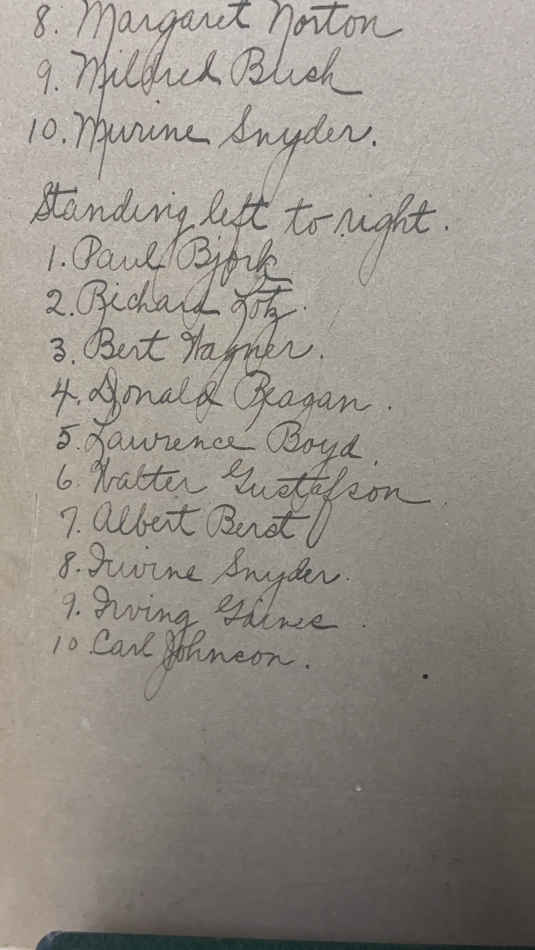 8. Margaret Norton
9. Mildred Bush
10. Murine Snyder.
Standing left to right.
1. Paul Bjork
2. Richard Lotz.
3. Bert Wagner.
4. Donald Reagan.
5. Lawrence Boyd.
6. Walter Gustafson.
7. Albert Berst
8. Irvine Snyder.
9. Irving Gaines.
10 Carl Johnson.